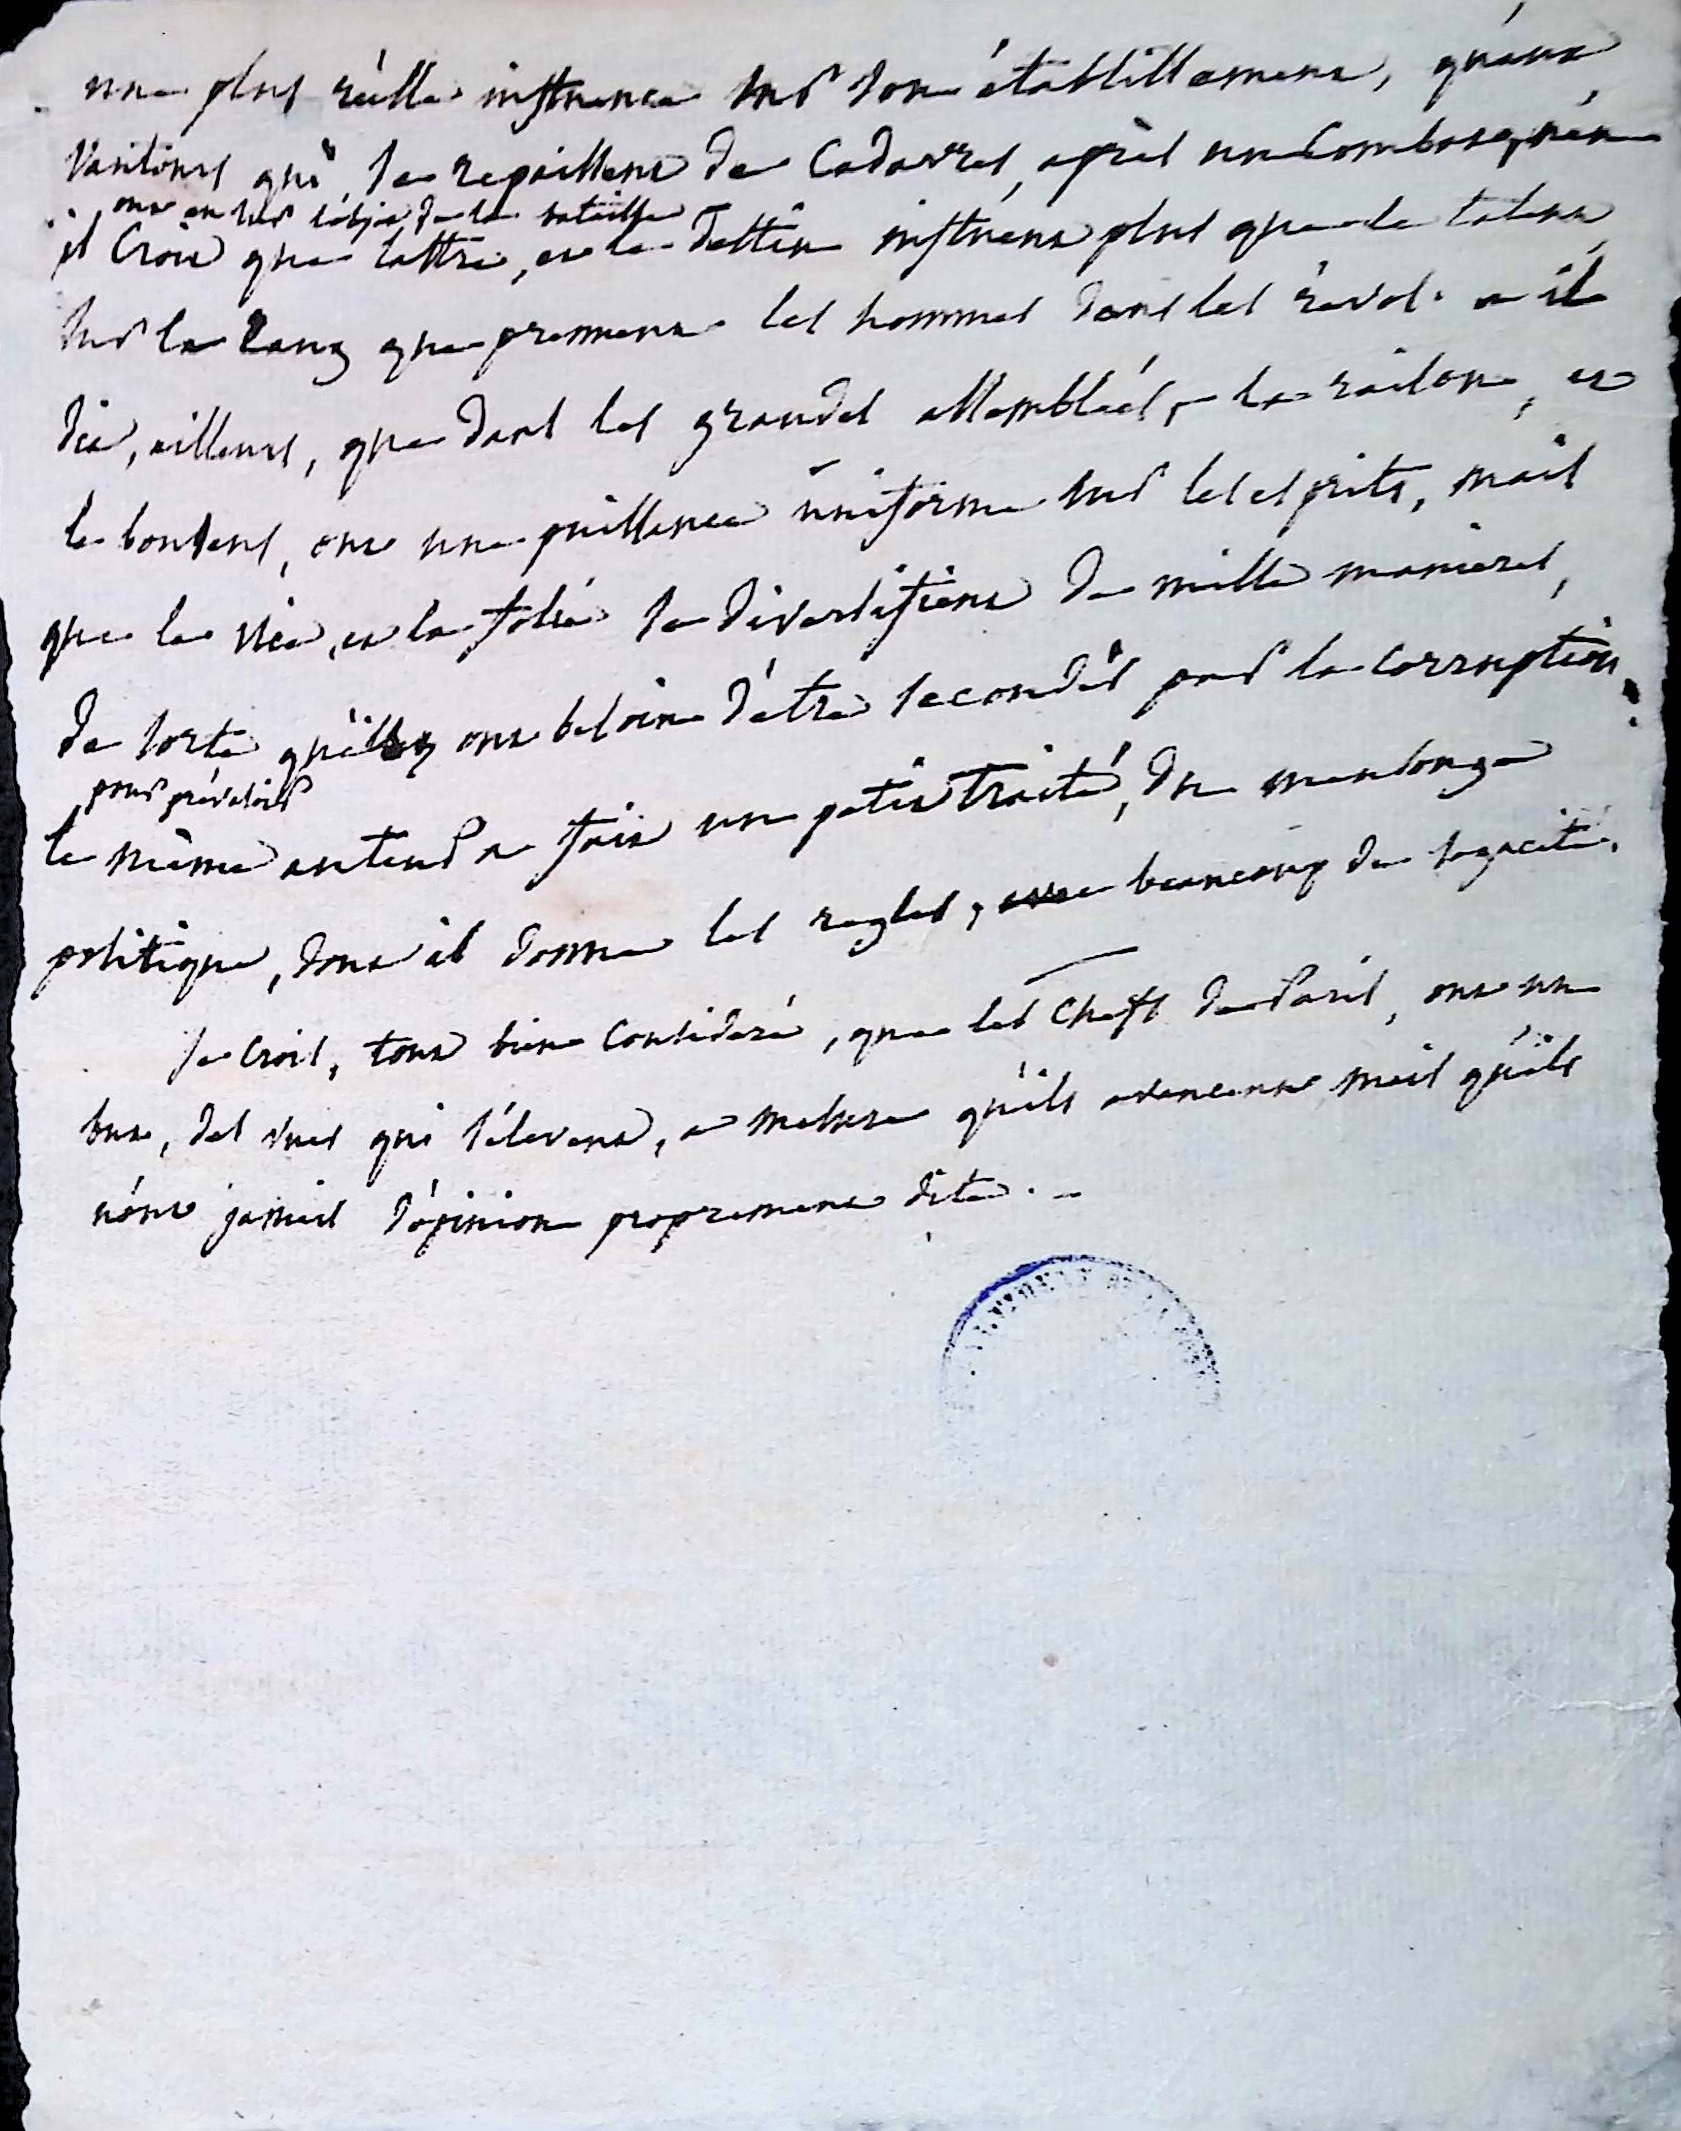 une plus réelle influence sur son établissement, qu'aux
Vautours qui se repaissent de Cadavres, après un Combat, qu'en
ont en sur l'objet de la bataille
il Croit que l'astre, et le destin influent plus que le talent,
sur le rang que prennent les hommes dans les révol. a il
dit, ailleurs, que dans les grandes assemblées, la raison, et
le bon sens, ont une puissance uniforme sur les esprits, mais
que le vice, et la folie se diversifient de mille manieres,
de sorte qu'ils ont besoin d'etre secondés par la Corruption
pour prévaloir
le même auteur a fait un petit traité, du mensonge
politique, dont il donne les regles, avec beaucoup de sagacité.
Je Crois, tout bien Considéré, que les Chefs de Paris, ont un
but, des vues qui s'élevent, a mesure qu'ils avancent mais qu'ils
n'ont jamais d'opinion proprement dite.